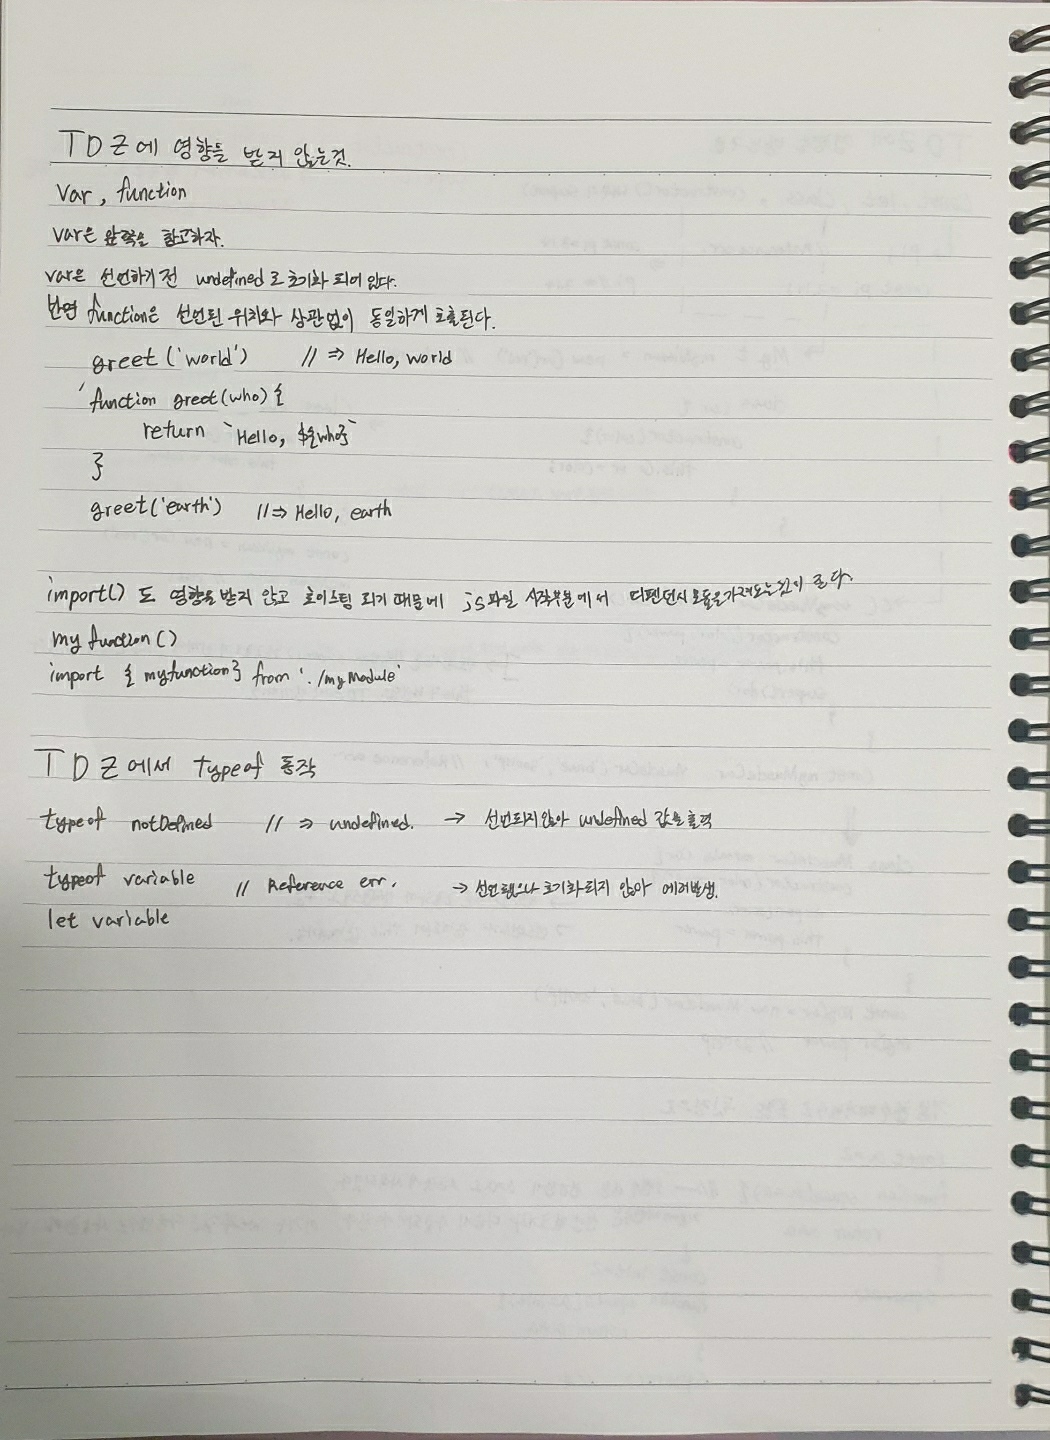 TDZ에 영향을 받지 않는것.
var, function
var은 앞쪽을 참고하자.
var은 선언하기 전 undefined로 초기화 되어 있다.
반면 function은 선언된 위치와 상관없이 동일하게 호출된다.
greet ('world') // => Hello, world
function greet(who) {
return `Hello, ${who}`
}
greet('earth') // => Hello, earth
import() 도 영향을 받지 않고 호이스팅 되기 때문에 js파일 시작부분에서 디펜던시 모듈을 가져오는것이 좋다.
my function ()
import { myfunction } from './myModule'
TDZ에서 typeof 동작
typeof notDefined // => undefined. → 선언되지 않아 undefined 값을 출력
typeof variable // Reference err. → 선언했으나 초기화되지 않아 에러발생.
let variable